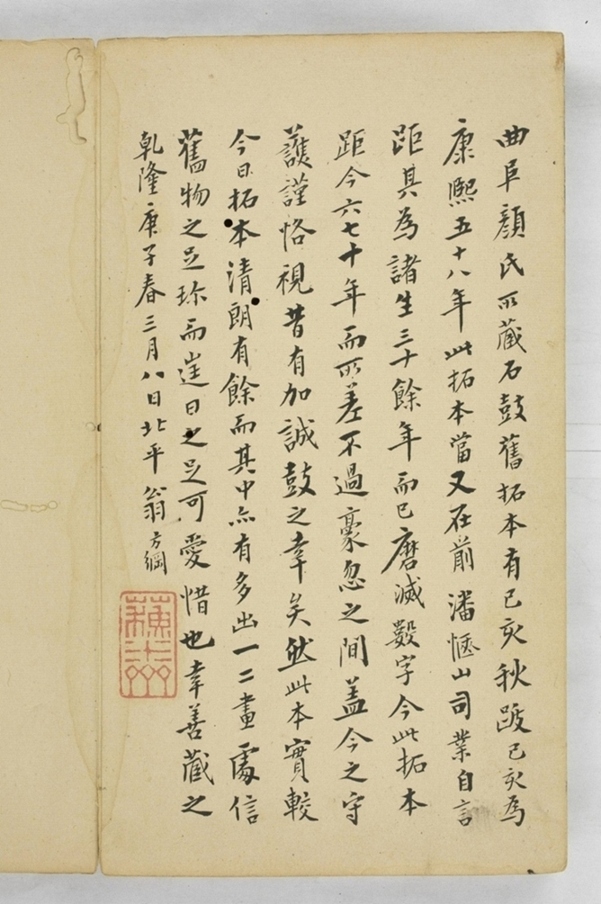 曲阜顏氏所藏石鼓舊拓本有己亥秋跋己亥為
康熙五十八年此拓本當又在前潘愜山司業自言
距其為諸生三十餘年而已磨滅數字今此拓本
距今六七十年而所差不過豪忽之間蓋今之守
護謹恪視昔有加誠鼓之幸矣然此本實較
今日拓本清朗有餘而其中亦有多出一二畫處信
舊物之足珎而豈曰之足可愛惜也幸善藏之
乾隆庚子春三月八日北平翁方綱
蘇齋